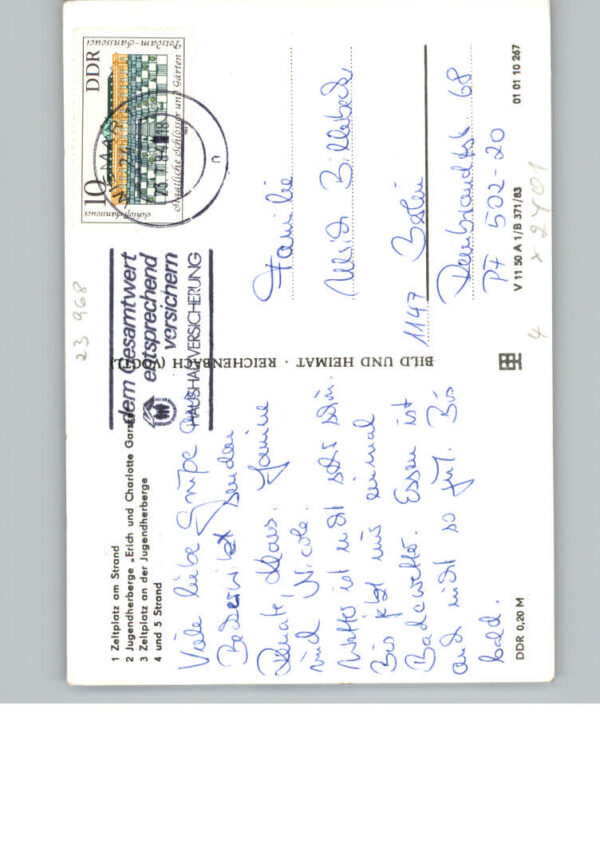 1 Zeltplatz am Strand
2 Jugendherberge „Erich und Charlotte Garske"
3 Zeltplatz an der Jugendherberge
4 und 5 Strand
Viele liebe Grüße
senden
Renate, Klaus, Janine
und Nicole.
Wetter ist nicht sehr schön.
Bis jetzt nur einmal
Badewetter. Essen ist
auch nicht so gut. Bis
bald.
DDR 0,20 M
23 968
dem Gesamtwert
entsprechend
versichern
HAUSHALTVERSICHERUNG
BILD UND HEIMAT · REICHENBACH (VOGTL)
10 DDR
Schloß Sanssouci
Potsdam-Sanssouci
Staatliche Schlösser und Gärten
Familie
1147 Berlin
68
PF 502-20
V 11 50 A 1/B 371/83
01 01 10 267
x 2701
4